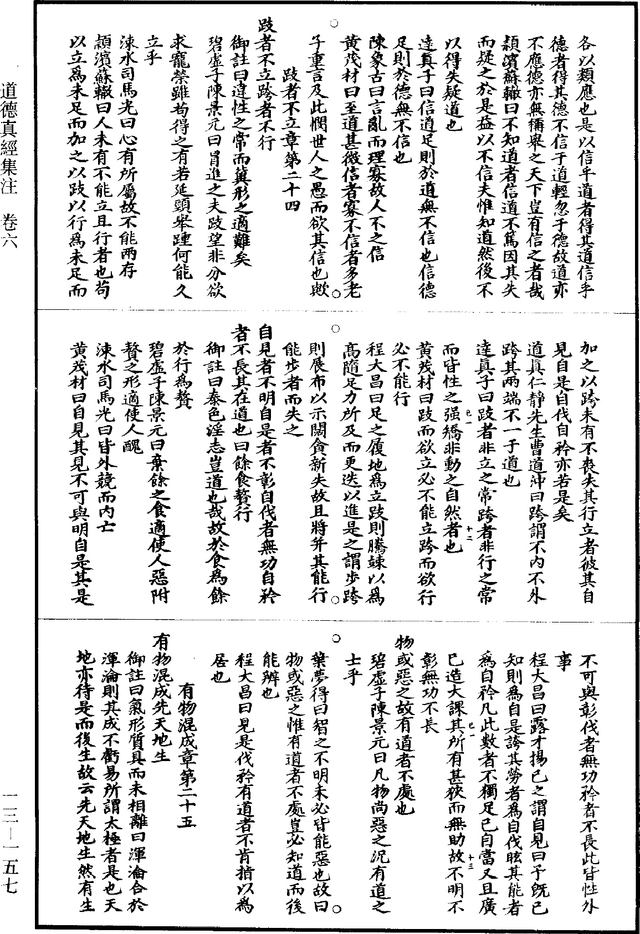 道德真經集注　卷六
各以類應也是以信乎道者得其道信乎
德者得其德不信于道輕忽于德故道亦
不應德亦無稱舉之天下豈有信之者哉
潁濱蘇轍曰不知道者信道不篤因其失
而疑之於是益以不信夫惟知道然後不
以得失疑道也
達真子曰信道足則於道無不信也信德
足則於德無不信也
陳象古曰言亂而理寡故人不之信
黃茂材曰至道甚微信者寡不信者多老
子重言及此憫世人之愚而欲其信也歟
跂者不立章第二十四
跂者不立跨者不行
御註曰違性之常而冀形之適難矣
碧虛子陳景元曰冒進之夫跂望非分欲
求寵榮雖苟得之有若延頸舉踵何能久
立乎
涑水司馬光曰心有所屬故不能兩存
潁濱蘇轍曰人未有不能立且行者也苟
以立為未足而加之以跂以行為未足而
加之以跨未有不喪失其行立者彼其自
見自是自伐自矜亦若是矣
道真仁靜先生曹道沖曰跨謂不內不外
跨其兩端不一于道也
達真子曰跂者非立之常跨者非行之常
而皆性之强矯非動之自然者也
黃茂材曰跂而欲立必不能立跨而欲行
必不能行
程大昌曰足之履地為立跂則騰竦以為
高隨足力所及而更迭以進是之謂步跨
則展布以示闊貪新失故且將并其能行
能步者而失之
自見者不明自是者不彰自伐者無功自矜
者不長其在道也曰餘食贅行
御註曰泰色淫志豈道也哉故於食為餘
於行為贅
碧虛子陳景元曰棄餘之食適使人惡附
贅之形適使人醜
涑水司馬光曰皆外競而內亡
黃茂材曰自見其見不可與明自是其是
不可與彰伐者無功矜者不長此皆性外
事
程大昌曰露才揚己之謂自見曰予旣已
知則為自是誇其勞者為自伐眩其能者
為自矜凡此數者不獨足已自當又且廣
已造大課其所有甚狹而無助故不明不
彰無功不長
物或惡之故有道者不處也
碧虛子陳景元曰凡物尚惡之況有道之
士乎
葉夢得曰智之不明未必皆能惡也故曰
物或惡之惟有道者不處豈必知道而後
能辨也
程大昌曰見是伐矜有道者不肯揹以為
居也
有物混成章第二十五
有物混成先天地生
御註曰氣形質具而未相離曰渾淪合於
渾淪則其成不虧易所謂太極者是也天
地亦待是而後生故云先天地生然有生
一三—一五七